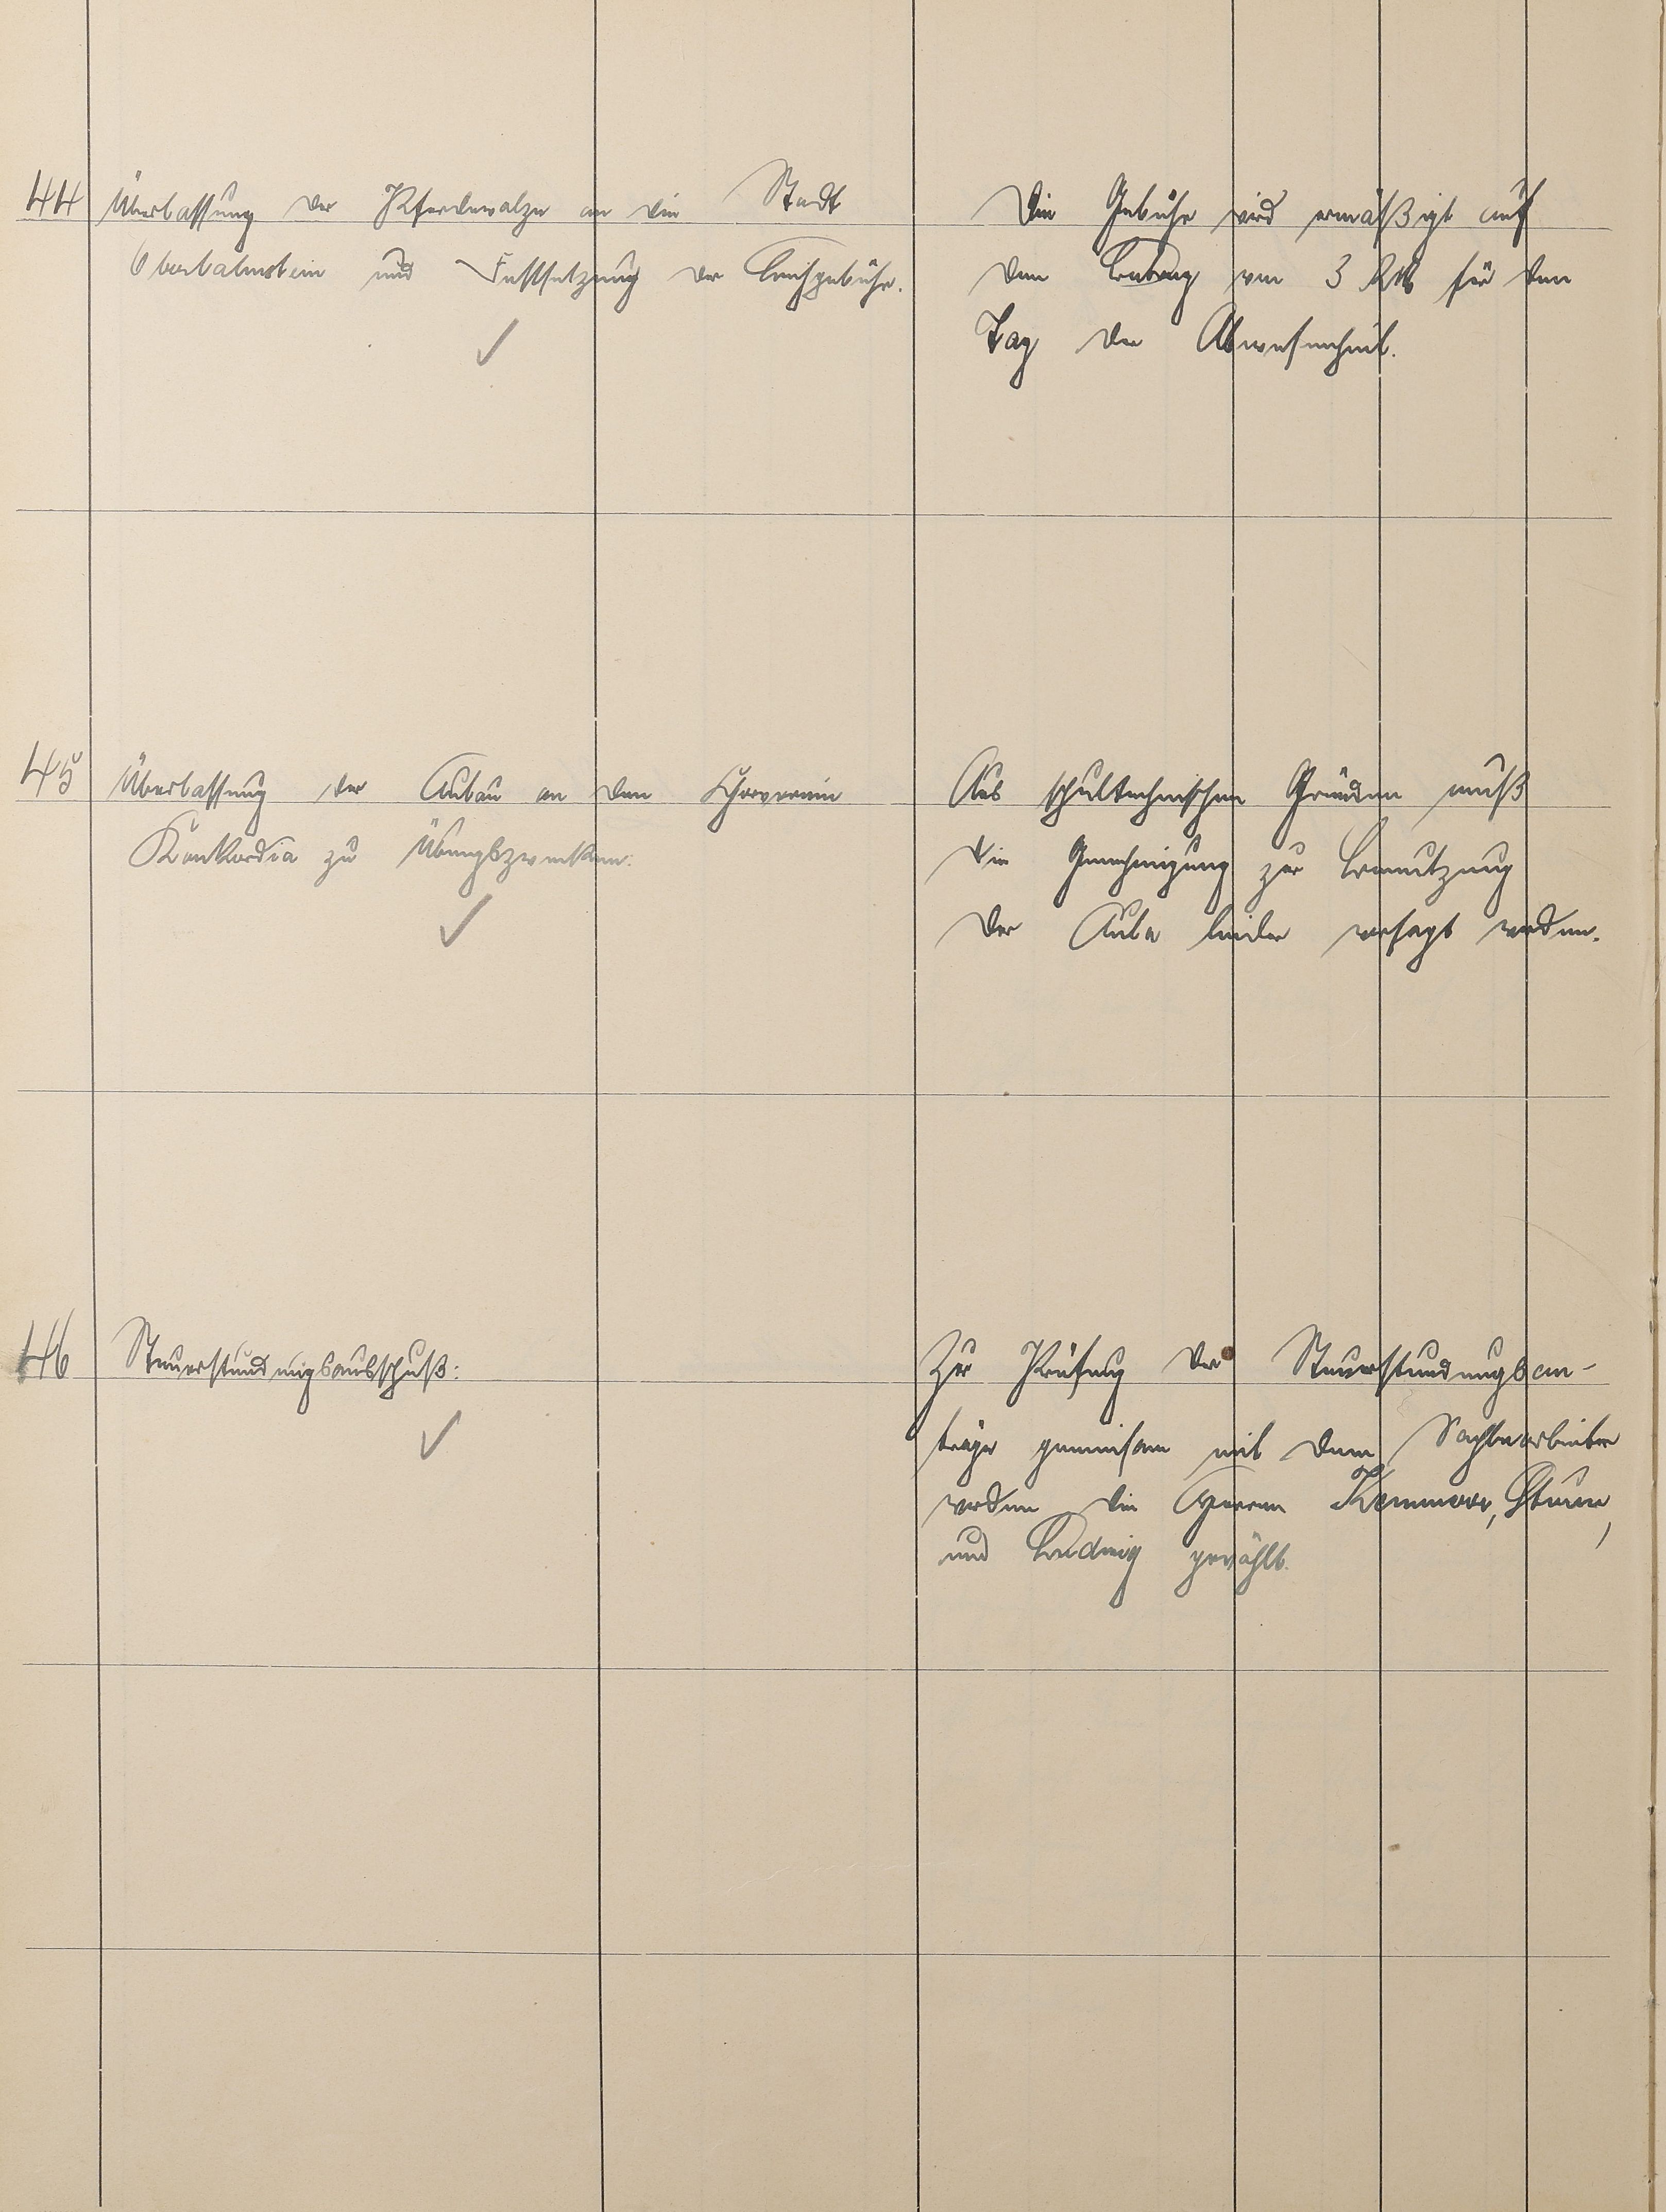 44
Überlassung der Pferdewalze an die Stadt
Oberlahnstein und Festsetzung der Leihgebühr.
Die Gebühr wird ermäßigt auf
den Betrag von 3 RM für den
Tag der Abwesenheit.
45
Überlassung der Aulau an den Chorverein
Konkordia zu Übungszwecken:
Aus schultechnischen Gründen muß
die Genehmigung zur Benutzung
der Aula leider versagt werden.
46
Steuerstundungsausschuß:
Zur Prüfung der Steuerstundungsan-
träge gemeinsam mit dem Sachbearbeiter
werden die Herren
und gewählt.